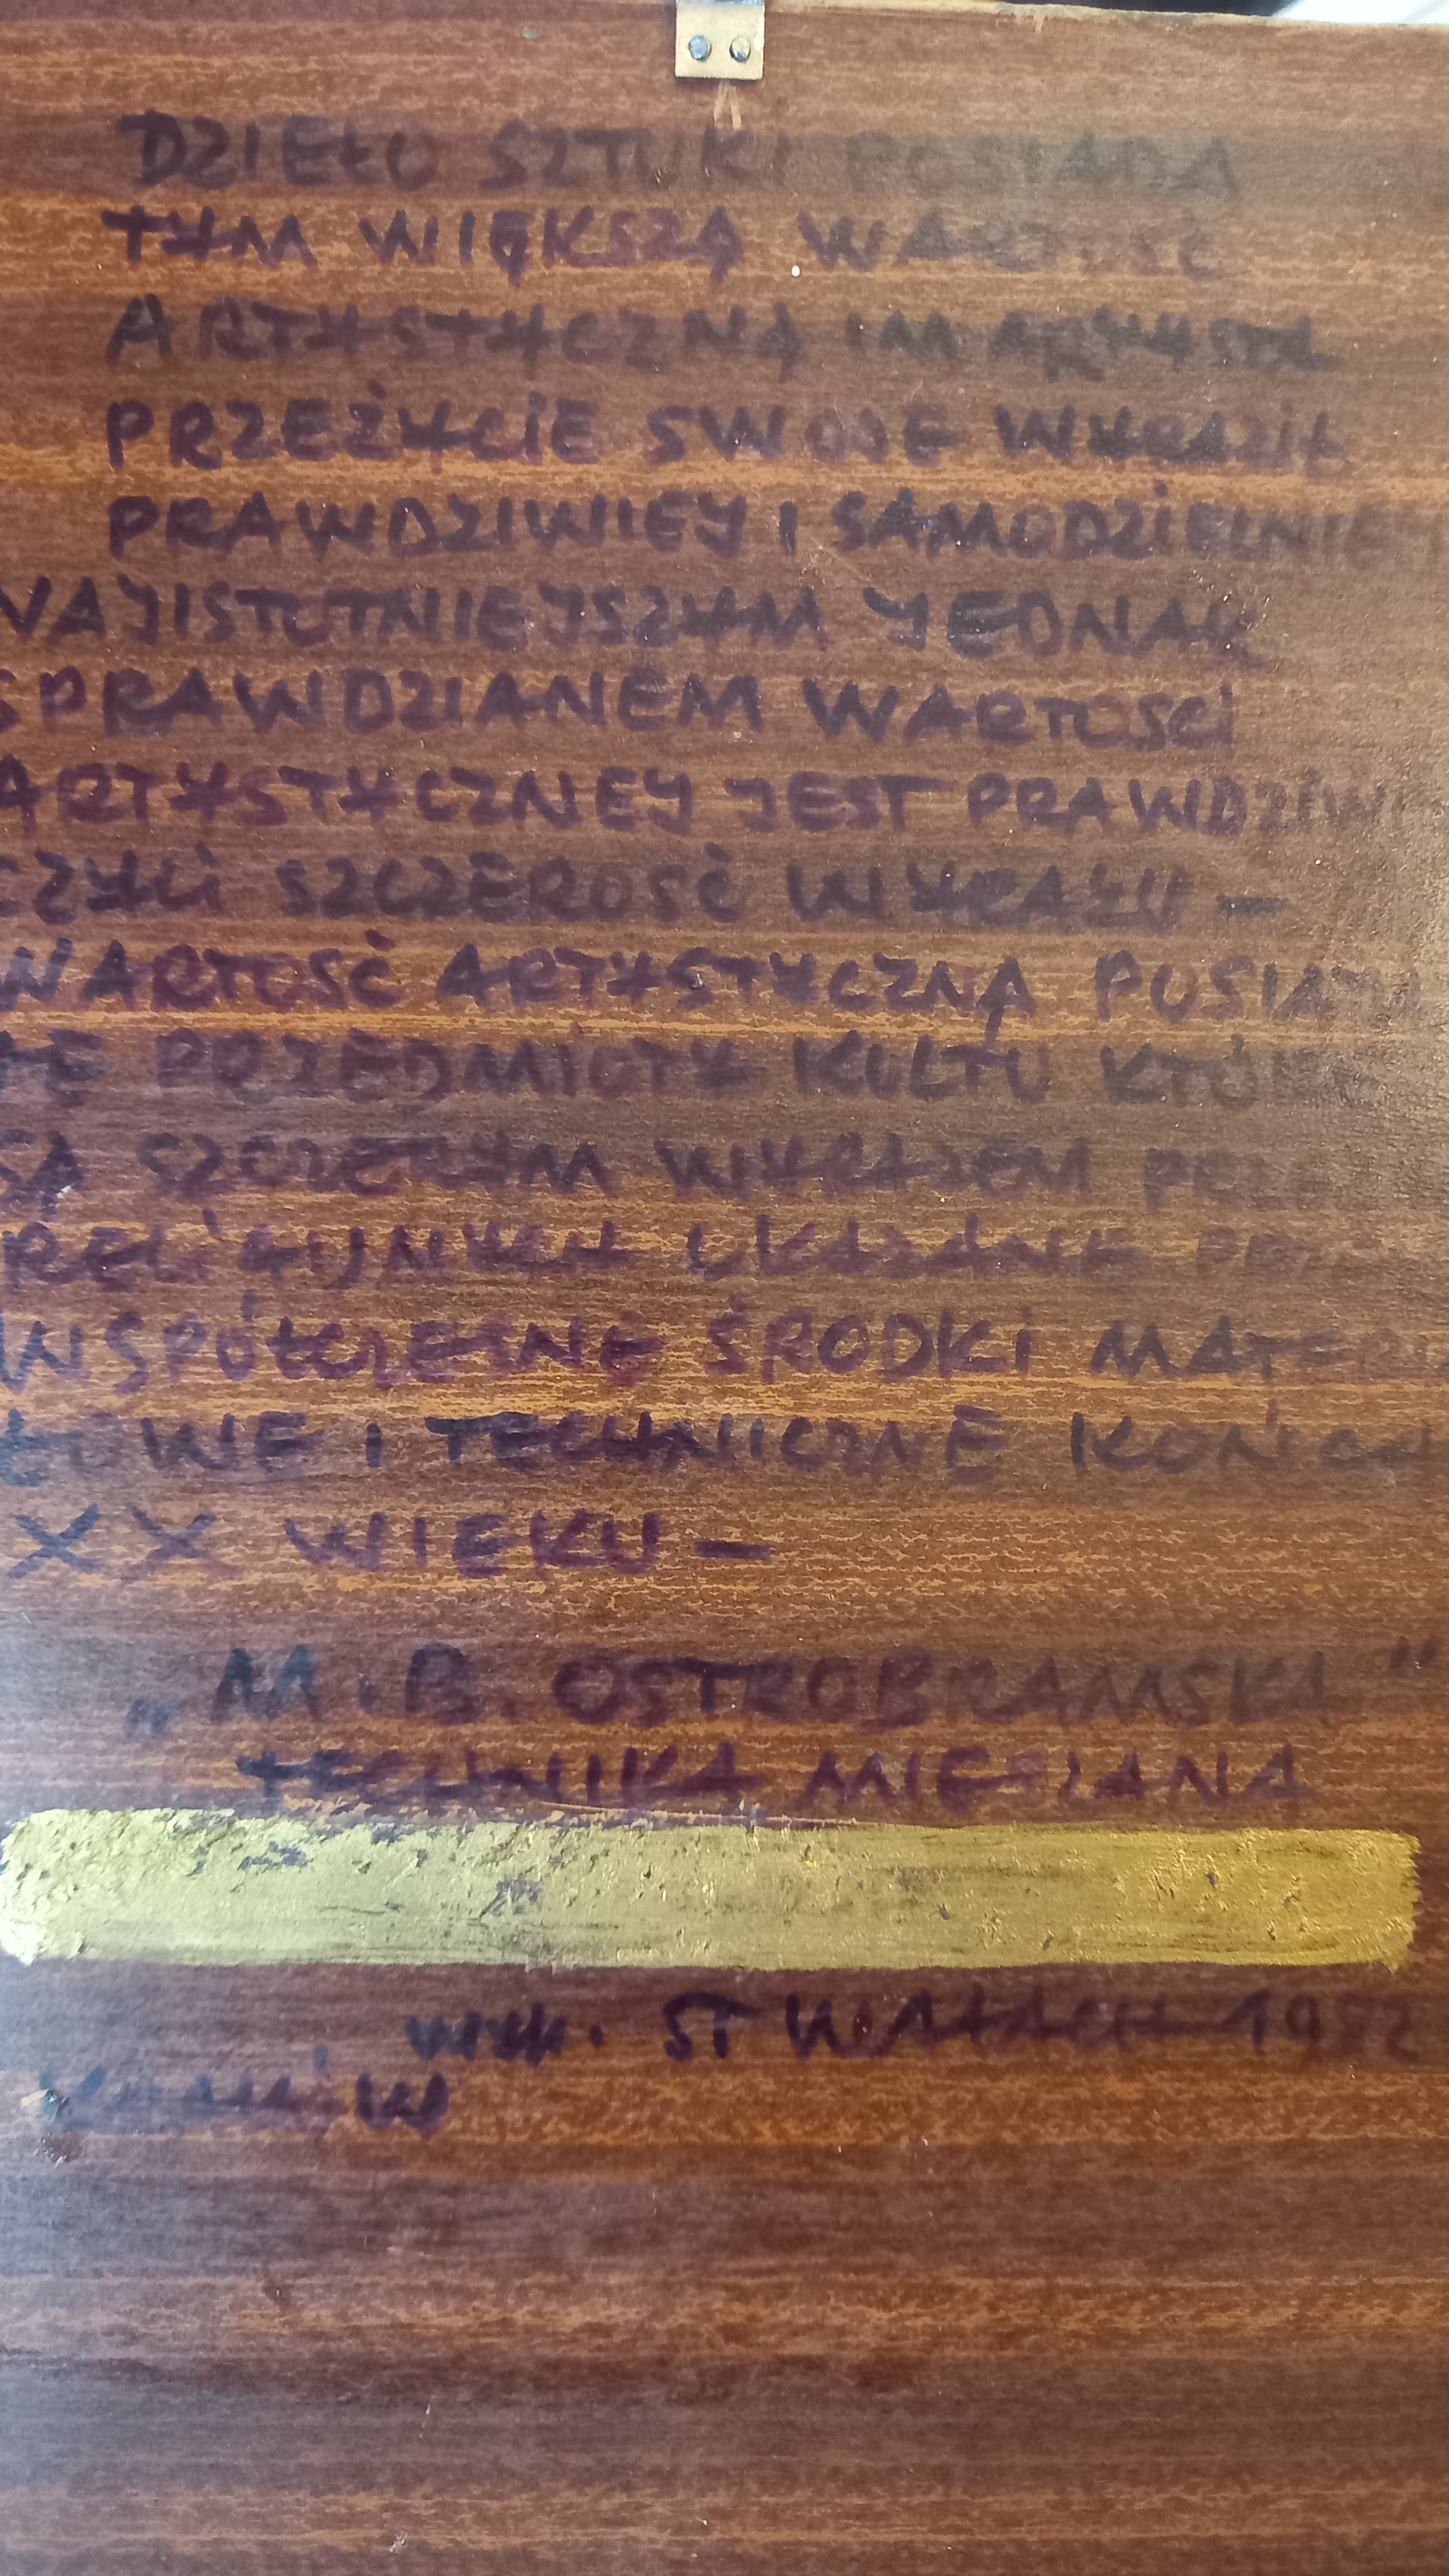 DZIEŁO SZTUKI POSIADA
TYM WIĘKSZĄ WARTOŚĆ
ARTYSTYCZNĄ IM ARTYSTA
PRZEŻYCIE SWOJE WYRAZIŁ
PRAWDZIWIEJ I SAMODZIELNIE
NAJISTOTNIEJSZYM JEDNAK
SPRAWDZIANEM WARTOŚCI
ARTYSTYCZNEJ JEST PRAWDZIW
CZYLI SZCZEROŚĆ WYRAZU -
WARTOŚĆ ARTYSTYCZNĄ POSIADA
TE PRZEDMIOTY KULTU KTÓRE
SĄ SZCZERYM WYRAZEM
RELIGIJNYCH
WSPÓŁCZESNE ŚRODKI MATERIA
ŁOWE I TECHNICZNE KOŃCA
XX WIEKU -
„M.B. OSTROBRAMSKA"
TECHNIKA MIESZANA
WYK. ST 1982